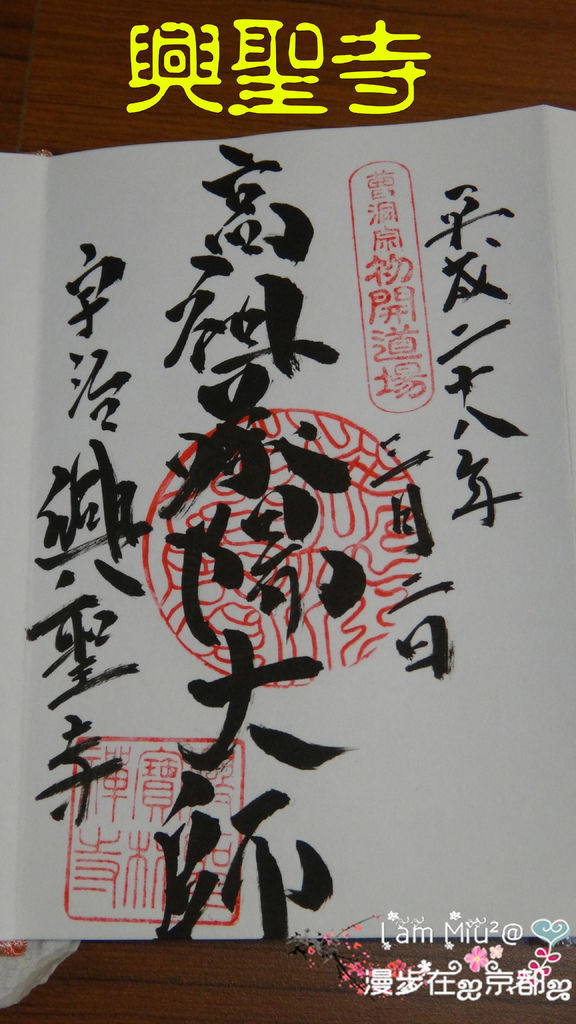 興聖寺
平成二十八年
三月二日
曹洞宗初開道場
高祖承陽大師
宇治興聖寺
I am Miu²@
漫步在京都